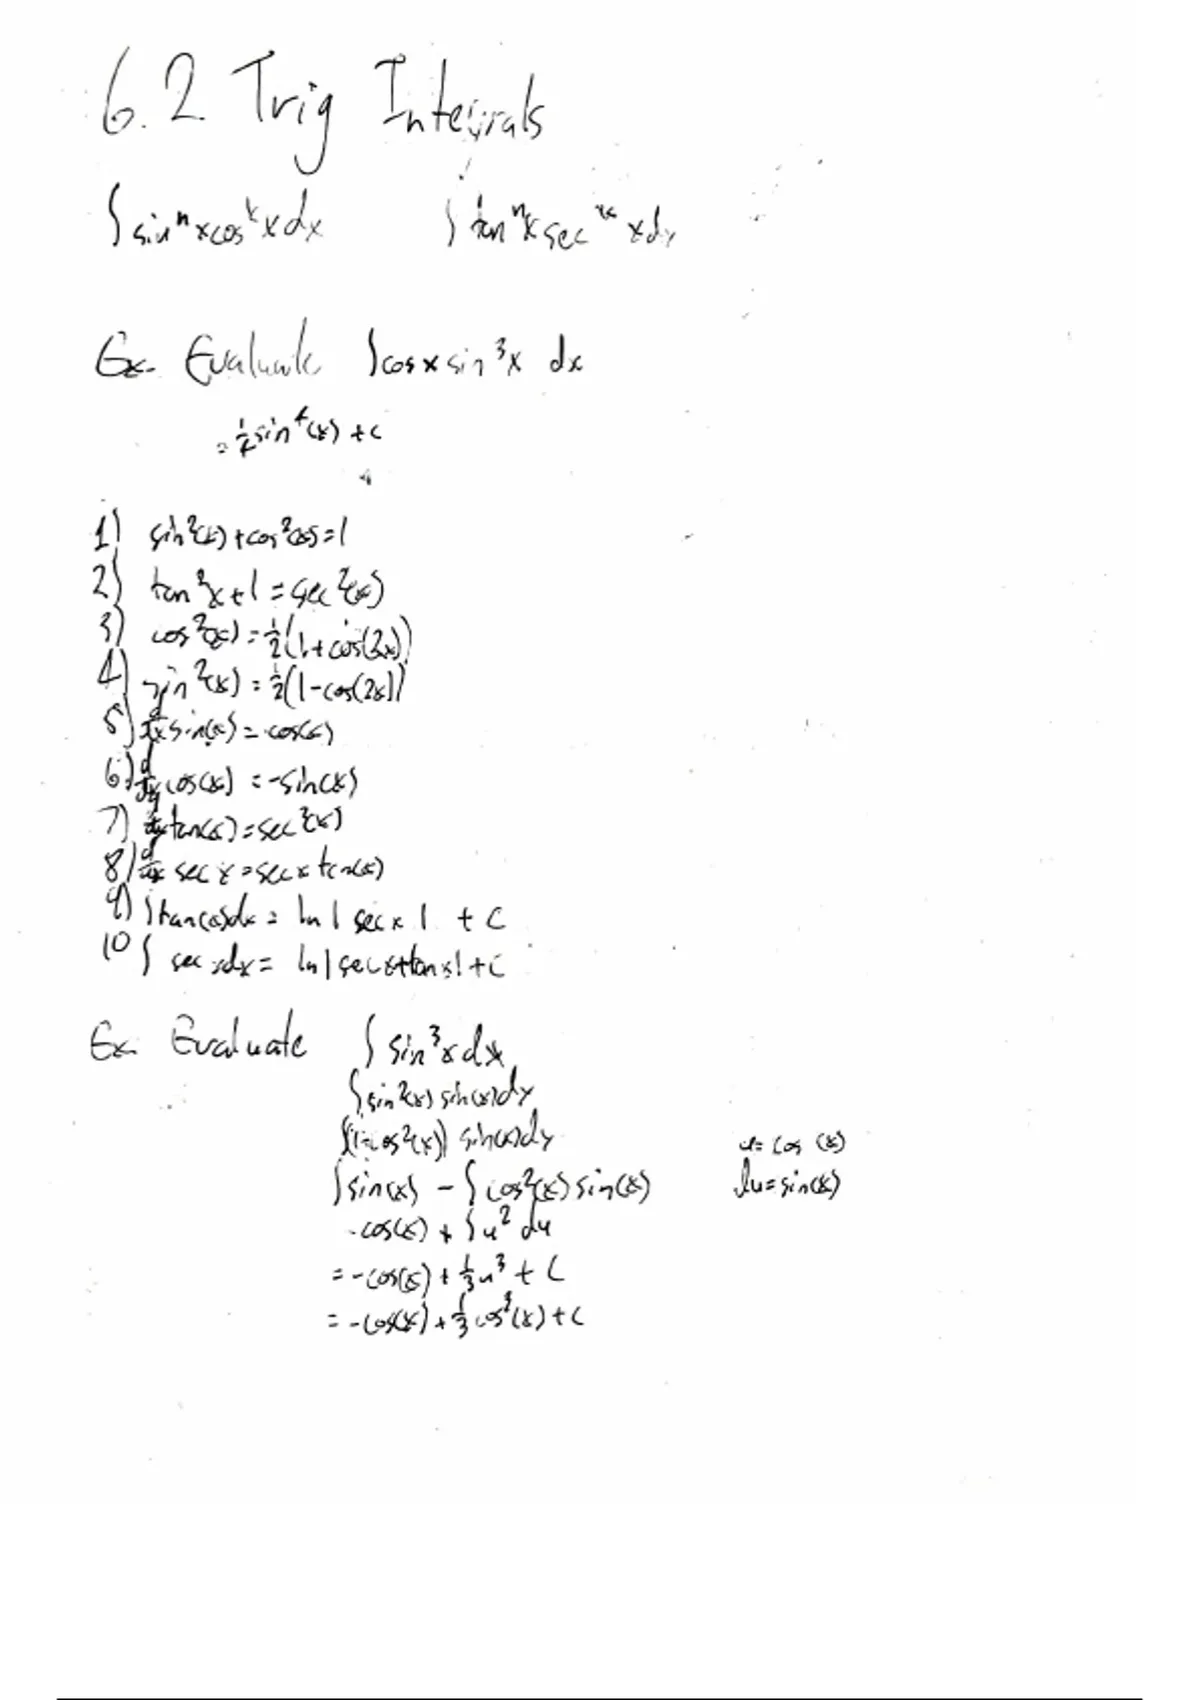 6.2 Trig Integrals
∫sinⁿxcosᵏxdx ∫tanⁿxsec xdx
Ex. Evaluate ∫cosxsin³x dx
= sin⁴(x)+c
1) sin²(x)+cos²(x)=1
2) tan²x+1=sec²(x)
3) cos²(x)=½(1+cos(2x))
4) sin²(x)=½(1-cos(2x))
5) d/dx sin(x)=cos(x)
6) d/dx cos(x)=-sin(x)
7) d/dx tan(x)=sec²(x)
8) d/dx sec x=secx tan(x)
9) ∫tan(x)dx= ln|secx|+C
10) ∫secxdx= ln|secx+tanx|+C
Ex. Evaluate ∫sin³xdx
∫sin²(x)sin(x)dx
∫(1-cos²(x))sin(x)dx u=cos(x)
∫sin(x)-∫cos²(x)sin(x) du=sin(x)
-cos(x)+∫u²du
=-cos(x)+⅓u³+C
=-cos(x)+⅓cos³(x)+C